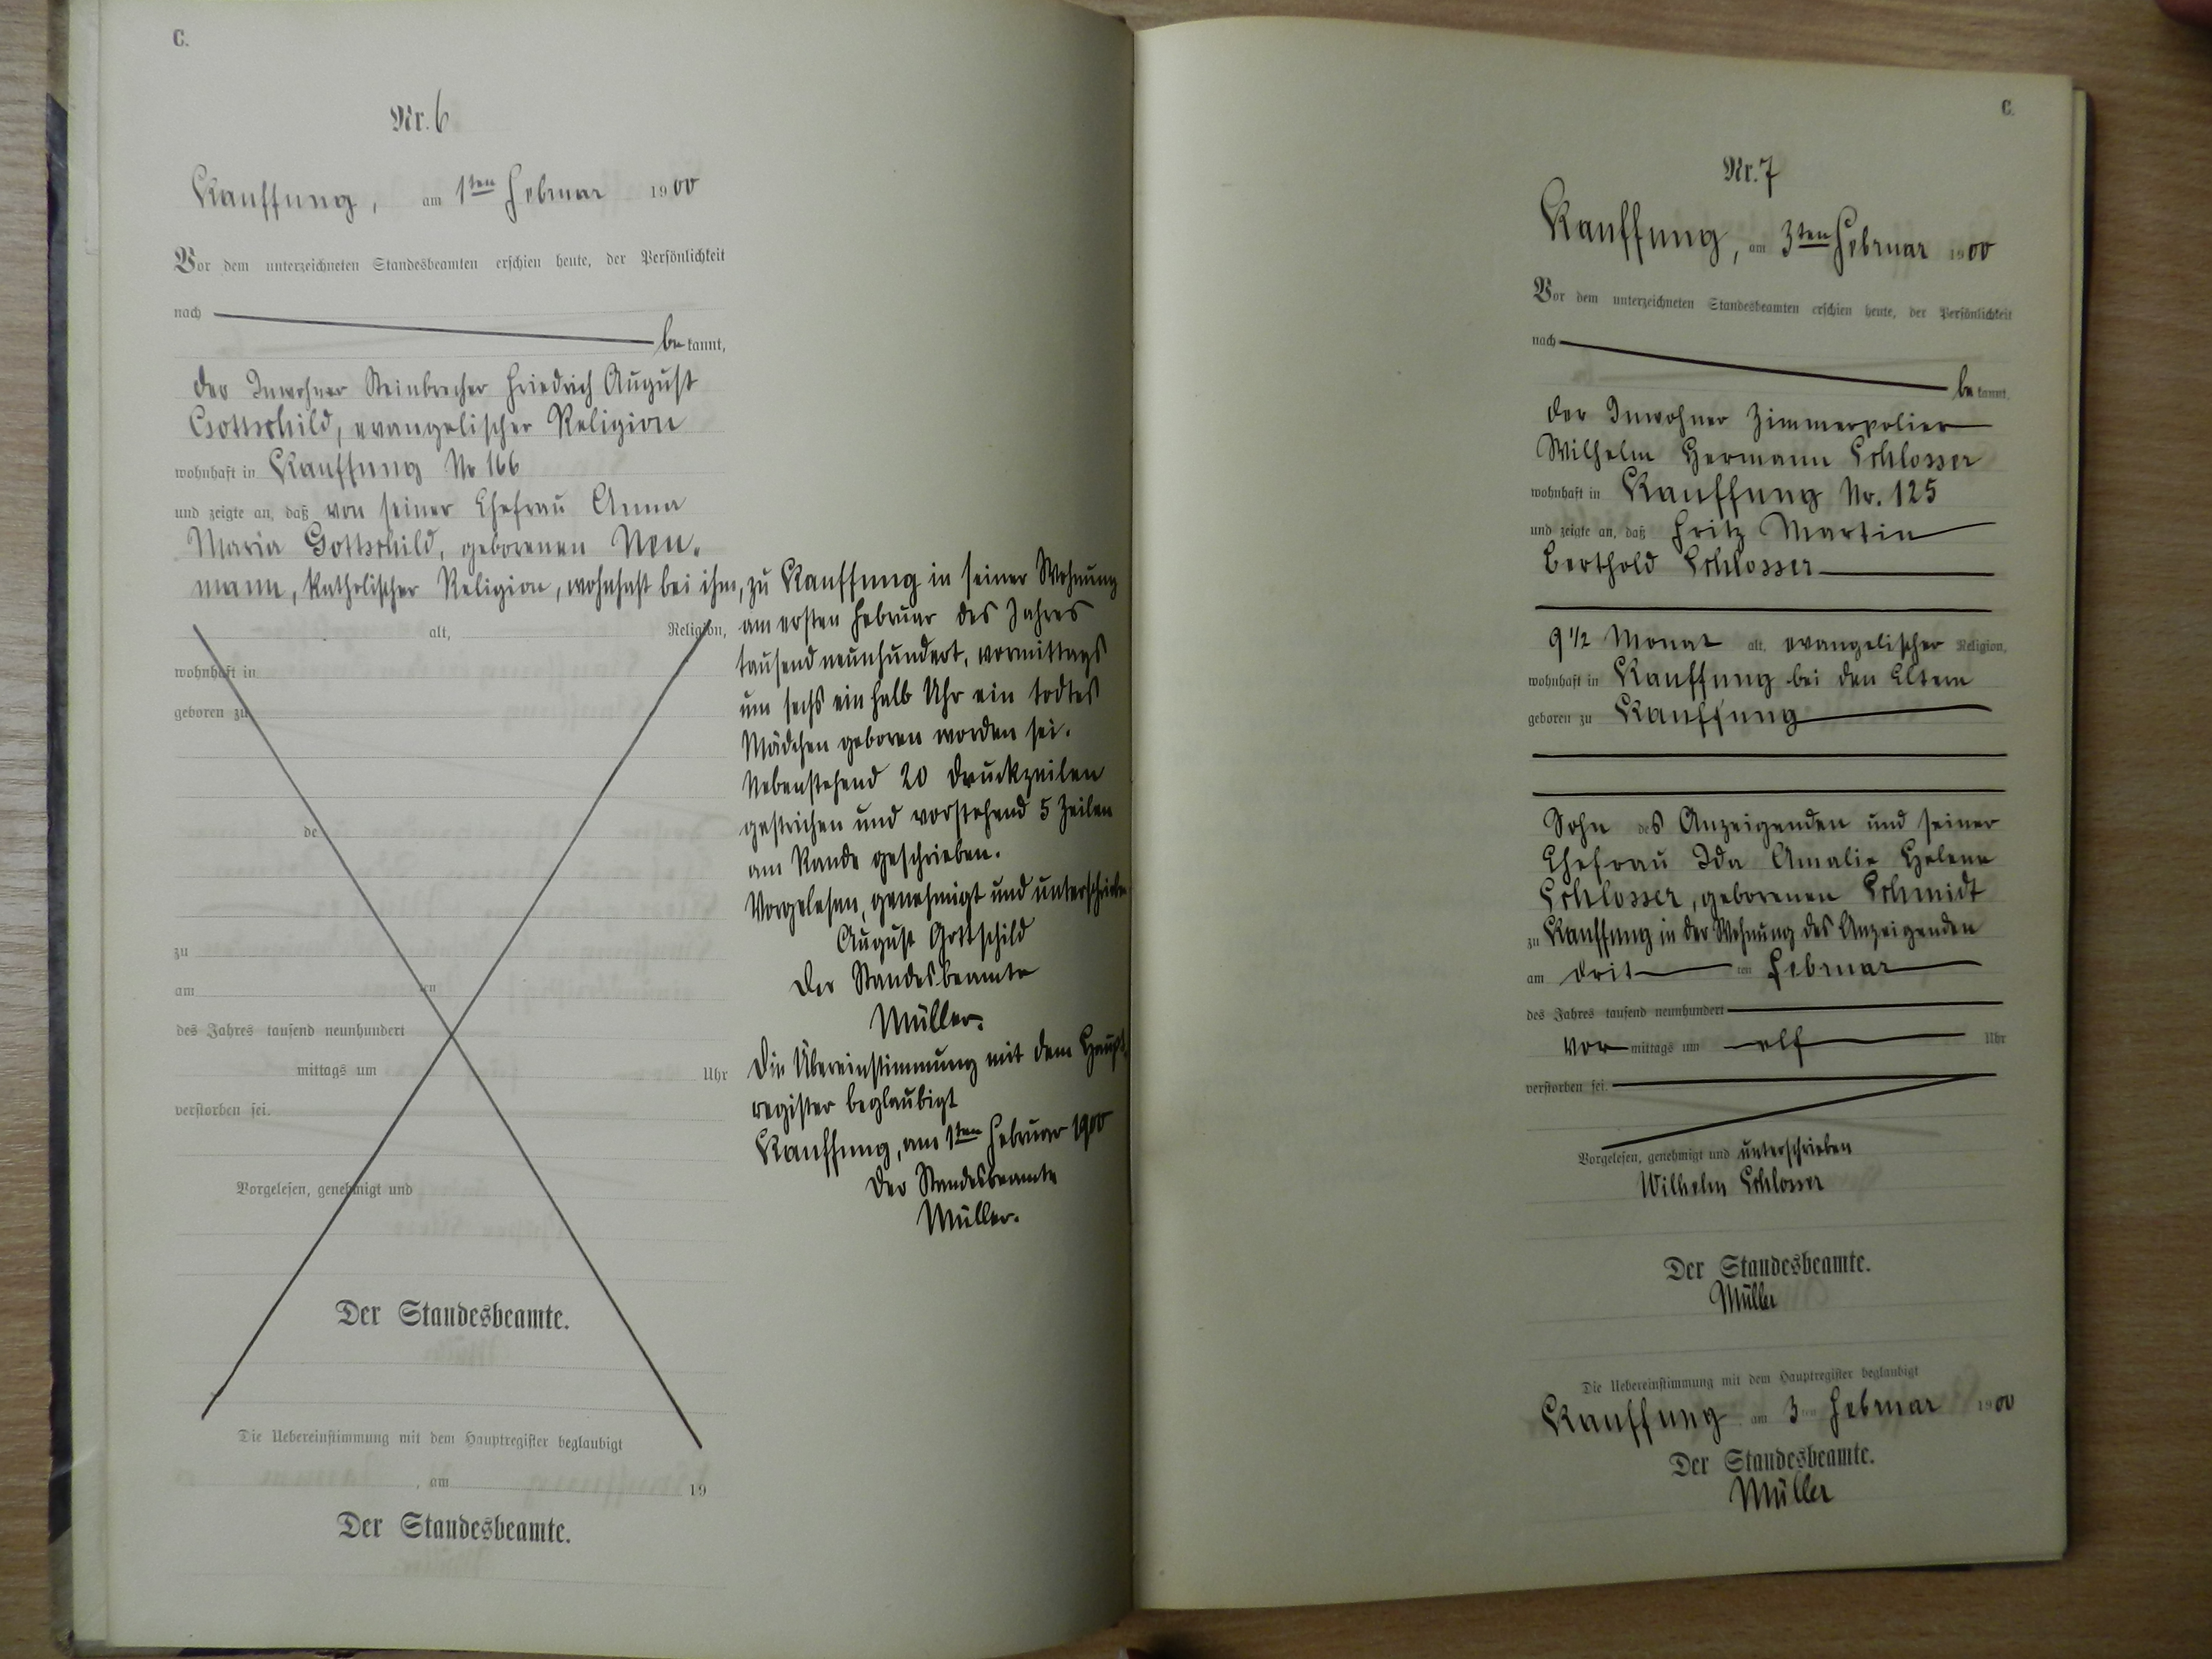 C.
Nr. 6
Kauffung, am 1ten Februar 1900
Vor dem unterzeichneten Standesbeamten erschien heute, der Persönlichkeit
nach
bekannt,
der Inwohner Steinbrecher Friedrich August
Gottschild, evangelischer Religion
wohnhaft in Kauffung Nr 166
und zeigte an, daß von seiner Ehefrau Anna
Maria Gottschild, geborenen Neu-
mann, katholischer Religion, wohnhaft bei ihm,
alt, Religion,
wohnhaft in
geboren zu
de
zu
am ten
des Jahres tausend neunhundert
mittags um Uhr
verstorben sei.
Vorgelesen, genehmigt und
Der Standesbeamte.
Die Uebereinstimmung mit dem Hauptregister beglaubigt
, am 19
Der Standesbeamte.
zu Kauffung in seiner Wohnung
am ersten Februar des Jahres
tausend neunhundert, vormittags
um sechs ein halb Uhr ein todtes
Mädchen geboren worden sei.
Nebenstehend 20 Druckzeilen
gestrichen und vorstehend 5 Zeilen
am Rande geschrieben.
Vorgelesen, genehmigt und unterschrieben
August Gottschild
Der Standesbeamte
Müller.
Die Übereinstimmung mit dem Haupt-
register beglaubigt
Kauffung, am 1ten Februar 1900
Der Standesbeamte
Müller.
C.
Nr. 7
Kauffung, am 3ten Februar 1900
Vor dem unterzeichneten Standesbeamten erschien heute, der Persönlichkeit
nach
bekannt,
der Inwohner Zimmerpolier
Wilhelm Hermann Schlosser
wohnhaft in Kauffung Nr. 125
und zeigte an, daß Fritz Martin
Berthold Schlosser
9 1/2 Monat alt, evangelischer Religion,
wohnhaft in Kauffung bei den Eltern
geboren zu Kauffung
Sohn des Anzeigenden und seiner
Ehefrau Ida Amalie Helene
Schlosser, geborenen Schmidt
zu Kauffung in der Wohnung des Anzeigenden
am dritten Februar
des Jahres tausend neunhundert
vormittags um elf Uhr
verstorben sei.
Vorgelesen, genehmigt und unterschrieben
Wilhelm Schlosser
Der Standesbeamte.
Müller
Die Uebereinstimmung mit dem Hauptregister beglaubigt
Kauffung am 3ten Februar 1900
Der Standesbeamte.
Müller